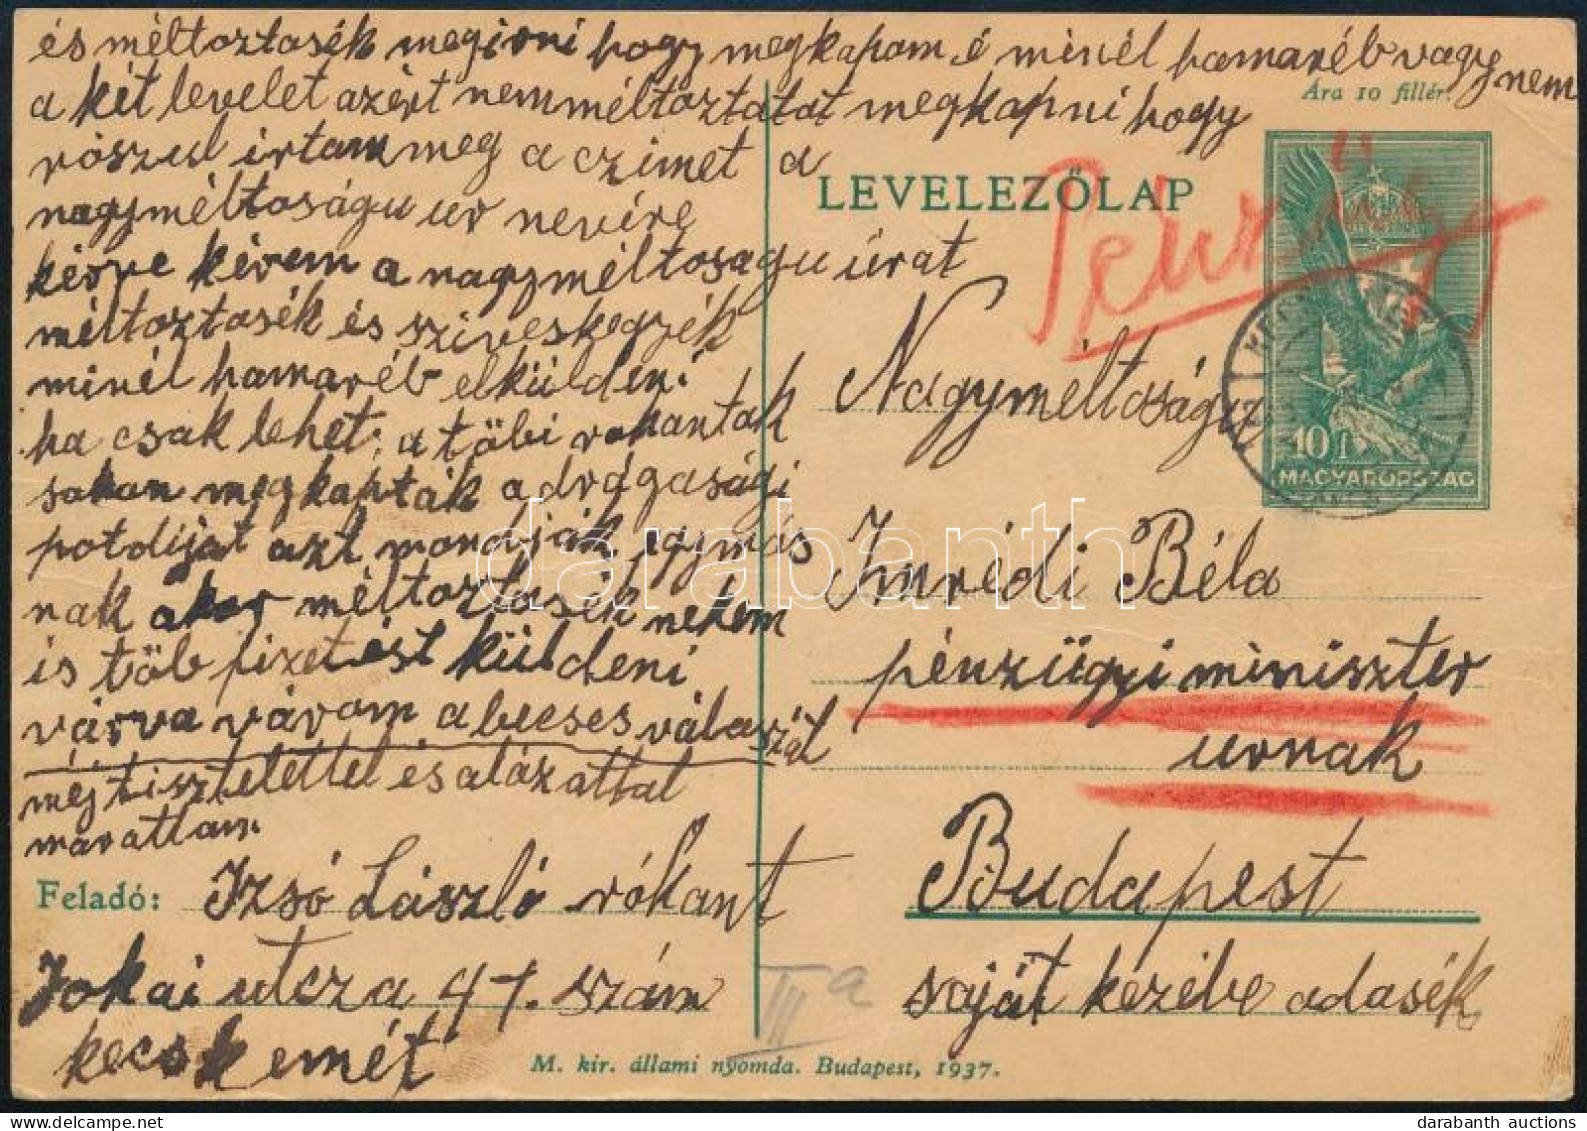 és méltoztasék megirni hogy megkapom é minél hamaréb vagy nem
a két levelet azért nem méltoztatot megkapni hogy
rószul irtam meg a czimet a
nagyméltoságu ur nevére
kérve kérem a nagyméltosagu úrat
méltoztasék és sziveskegyék
minél hamaréb elküldeni
ha csak lehet; a töbi rokantak
sokan megkapták a drágasági
potdijat azt mondják egymás
nak aker méltoztasék nekem
is töb fizetést küldeni
várva várom a becses válaszát
méjtisztelettel és alázattal
maratlam.
Feladó: Izsó László rókant
Jokai utcza 41. szám
kecskemét
Ára 10 fillér.
LEVELEZŐLAP
Pénzügy
10 f
MAGYARORSZÁG
Nagyméltoságu
Imrédi Béla
pénzügyi miniszter
urnak
Budapest
saját kezébe adasék
III a
M. kir. állami nyomda. Budapest, 1937.
darabanth
darabanth auctions